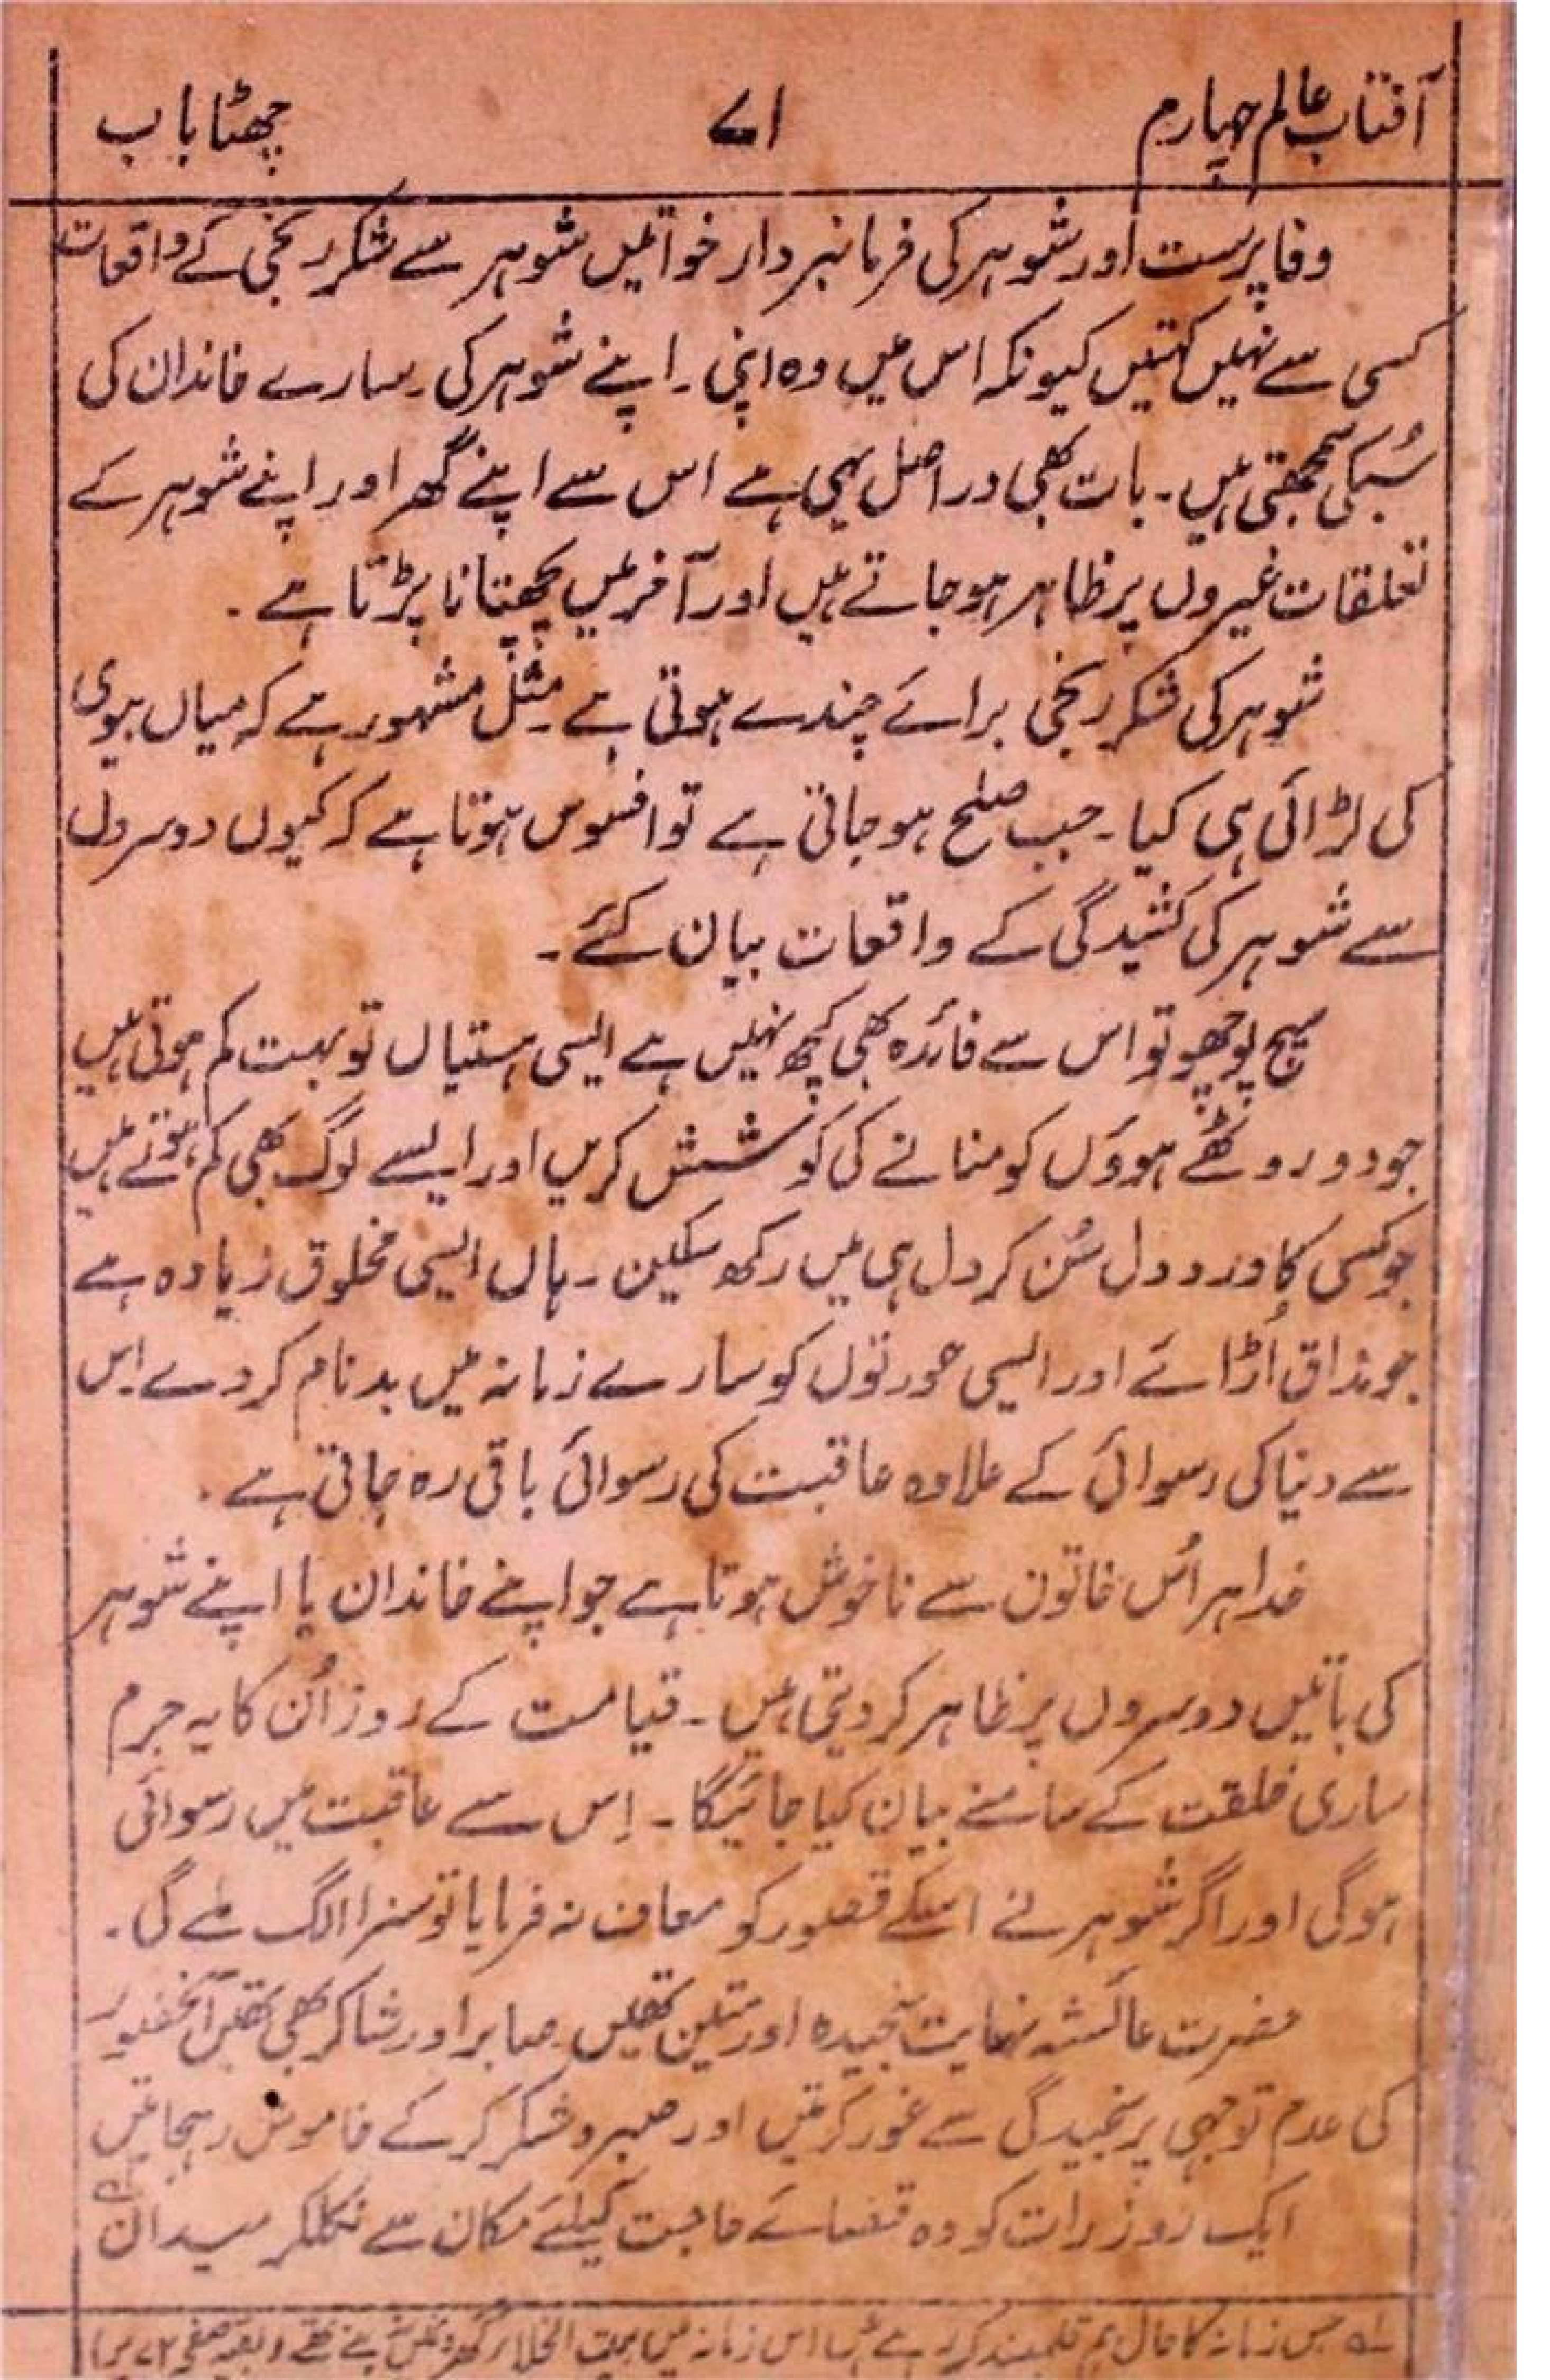 آفتاب عالم چہارم
۷۱
چھٹا باب
وفا پرست اور شوہر کی فرمانبردار خواتیں شوہر سے شکر رنجی کے واقعات
کسی سے نہیں کہتیں کیونکہ اس میں وہ اپنی ۔ اپنے شوہر کی ۔ سارے خاندان کی
سُبکی سمجھتی ہیں ۔ بات بھی دراصل یہی ہے اس سے اپنے گھر اور اپنے شوہر کے
تعلقات غیروں پر ظاہر ہو جاتے ہیں اور آخر میں پچھتانا پڑتا ہے ۔
شوہر کی شکر رنجی برائے چندے ہوتی ہے ۔ مثل مشہور ہے کہ میاں بیوی
کی لڑائی ہی کیا ۔ جب صلح ہو جاتی ہے تو افسوس ہوتا ہے کہ کیوں دوسروں
سے شوہر کی کشیدگی کے واقعات بیان کئے ۔
سچ پوچھو تو اس سے فائدہ بھی کچھ نہیں ہے ایسی ہستیاں تو بہت کم ہوتی ہیں
جو دو روٹھے ہوؤں کو منانے کی کوشش کریں اور ایسے لوگ بھی کم ہوتے ہیں
جو کسی کا درد دل سُن کر دل ہی میں رکھ سکیں ۔ ہاں ایسی مخلوق زیادہ ہے
جو مذاق اُڑائے اور ایسی عورتوں کو سارے زمانہ میں بدنام کر دے اس
سے دنیا کی رسوائی کے علاوہ عاقبت کی رسوائی باقی رہ جاتی ہے ۔
خدا ہر اُس خاتون سے ناخوش ہوتا ہے جو اپنے خاندان یا اپنے شوہر
کی باتیں دوسروں پر ظاہر کر دیتی ہیں ۔ قیامت کے روز اُن کا یہ جرم
ساری خلقت کے سامنے بیان کیا جائیگا ۔ اِس سے عاقبت میں رسوائی
ہوگی اور اگر شوہر نے اسکے قصور کو معاف نہ فرمایا تو سزا الگ ملے گی ۔
حضرت عائشہ نہایت سنجیدہ اور متین تھیں صابر اور شاکر بھی تھیں آنحضور
کی عدم توجہی پر سنجیدگی سے غور کرتیں اور صبر و شکر کر کے خاموش رہجاتیں
ایک روز رات کو وہ قضائے حاجت کیلئے مکان سے نکلکر میدان
لہ جس زمانہ کا حال ہم قلمبند کر رہے ہیں اس زمانہ میں بیت الخلاء گھروں میں نہ بنے تھے (بقیہ صفحہ ۷۲ پر)